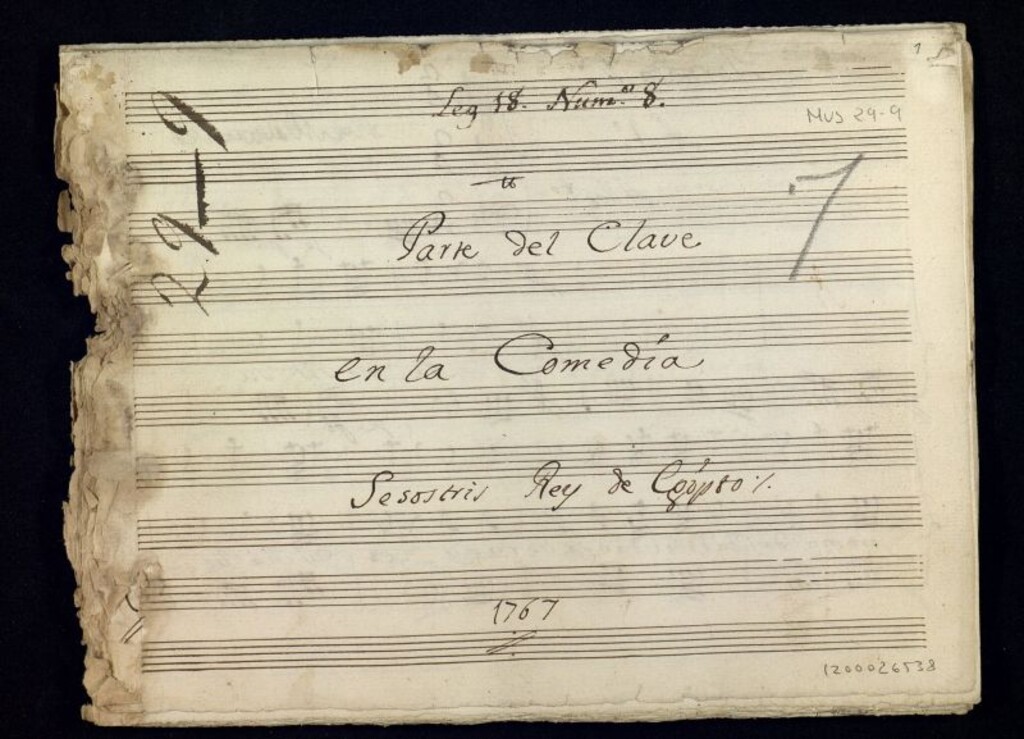 1
Leg 18. Num.º 8.
MUS 29-9
29-9
7
Parte del Clave
en la Comedía
Sesostris Rey de
1767
1200026538